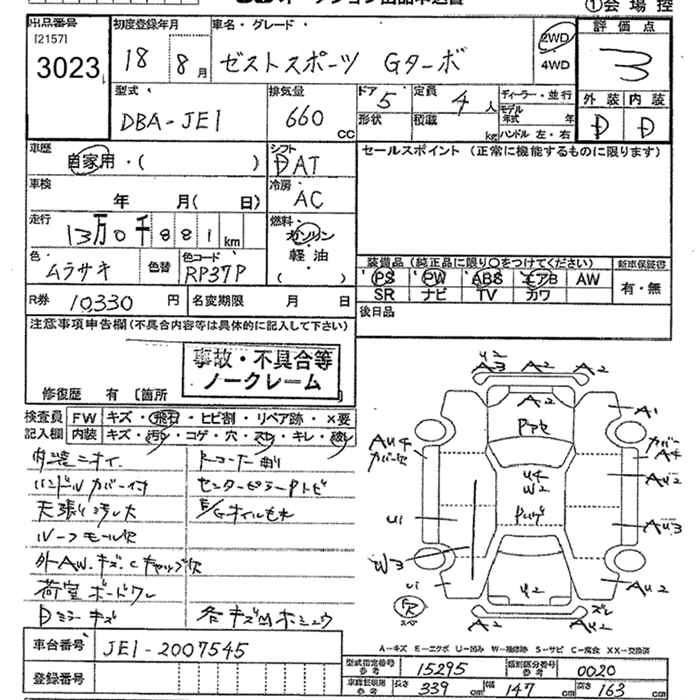 ①会場控
出品番号
[2157]
3023
初度登録年月
18 8月
車名・グレード
ゼストスポーツ Gターボ
2WD
4WD
評価点
3
外装 内装
D D
型式
DBA-JE1
排気量
660 CC
ドア 5
形状
定員 4人
積載 kg
ディーラー・並行
モデル年式 年
ハンドル 左・右
車歴
自家用・( )
シフト
DAT
セールスポイント (正常に機能するものに限ります)
車検
年 月( 日)
冷房
AC
走行
13万0千881km
燃料
ガソリン
軽・油
( )
色
ムラサキ
色替
色コード
RP37P
装備品 (純正品に限り○をつけてください)
新車保証書
PS PW ABS エアB AW
SR ナビ TV カワ
有・無
R券 10330円
名変期限 月 日
後日品
注意事項申告欄(不具合内容等は具体的に記入して下さい)
事故・不具合等
ノークレーム
修復歴 有 [箇所
検査員
記入欄
FW キズ・飛石・ヒビ割・リペア跡・×要
内装 キズ・汚レ・コゲ・穴・スレ・キレ・破レ
内装ニオイ
ハンドルカバー付
天張り汚レ大
ルーフモール欠
外AW.キズ.Cキャップ欠
荷室ボードワレ
Dミラーキズ
センターピラーPトビ
E/Gオイルもれ
各キズMホシュウ
U2
A3 A2 A2
A2
A1
AU4
カバー欠
カバー
A4
AU2
U4
W2
U1
AU3
W3
U1
U2
AU2
A2 A2
スレ
A-キズ E-エクボ U-凹み W-補修跡 S-サビ C-腐食 XX-交換済
車台番号 JE1-2007545
登録番号
型式指定番号 15295
類別区分番号 0020
車両証明用
参考
長さ 339cm 幅 147cm 高さ 163cm